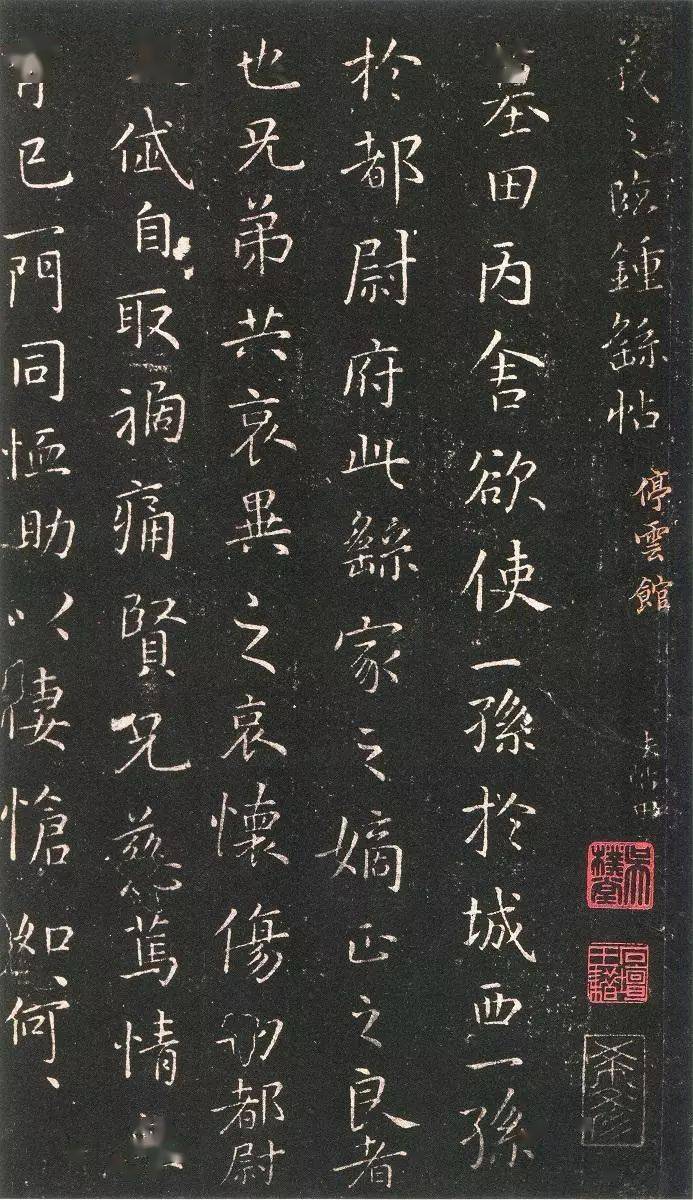 羲之臨鍾繇帖
停雲館
墓田丙舍欲使一孫於城西一孫
於都尉府此繇家之嫡正之良者
也兄弟共哀異之哀懷傷切都尉
文岱自取禍痛賢兄慈篤情無
有已一門同恤助以悽愴如何